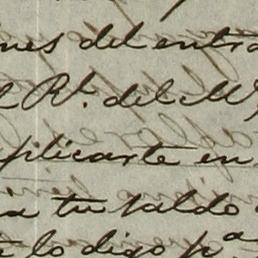 nes del entra
l Rl. del M
plicarte en
a tu saldo
lo digo pa